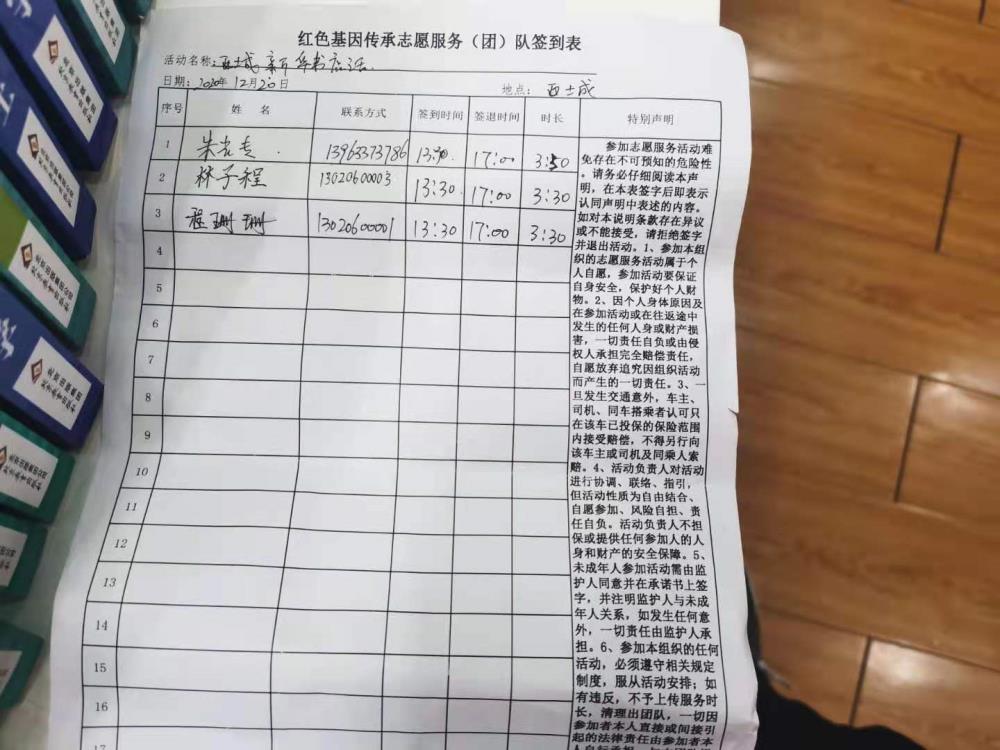 红色基因传承志愿服务（团）队签到表
活动名称：西士成新华书店活
日期：2020年12月20日 地点：西士成
序号 姓名 联系方式 签到时间 签退时间 时长 特别声明
1 朱 13963373786 17:00 3:30
2 林子程 13020600003 13:30 17:00 3:30
3 程珊珊 13020600001 13:30 17:00 3:30
4
5
6
7
8
9
10
11
12
13
14
15
16
17
参加志愿服务活动难
免存在不可预知的危险性
。请务必仔细阅读本声
明，在本表签字后即表示
认同声明中表述的内容。
如对本说明条款存在异议
或不能接受，请拒绝签字
并退出活动。1、参加本组
织的志愿服务活动属于个
人自愿，参加活动要保证
自身安全，保护好个人财
物。2、因个人身体原因及
在参加活动或在往返途中
发生的任何人身或财产损
害，一切责任自负或由侵
权人承担完全赔偿责任，
自愿放弃追究因组织活动
而产生的一切责任。3、一
旦发生交通意外，车主、
司机、同车搭乘者认可只
在该车已投保的保险范围
内接受赔偿，不得另行向
该车主或司机及同乘人索
赔。4、活动负责人对活动
进行协调、联络、指引，
但活动性质为自由结合、
自愿参加、风险自担、责
任自负。活动负责人不担
保或提供任何参加人的人
身和财产的安全保障。5、
未成年人参加活动需由监
护人同意并在承诺书上签
字，并注明监护人与未成
年人关系，如发生任何意
外，一切责任由监护人承
担。6、参加本组织的任何
活动，必须遵守相关规定
制度，服从活动安排；如
有违反，不予上传服务时
长，清理出团队，一切因
参加者本人直接或间接引
起的法律责任由参加者本
北京出版集团公司
北京出版集团
北京出版集团公司
北京出版集团